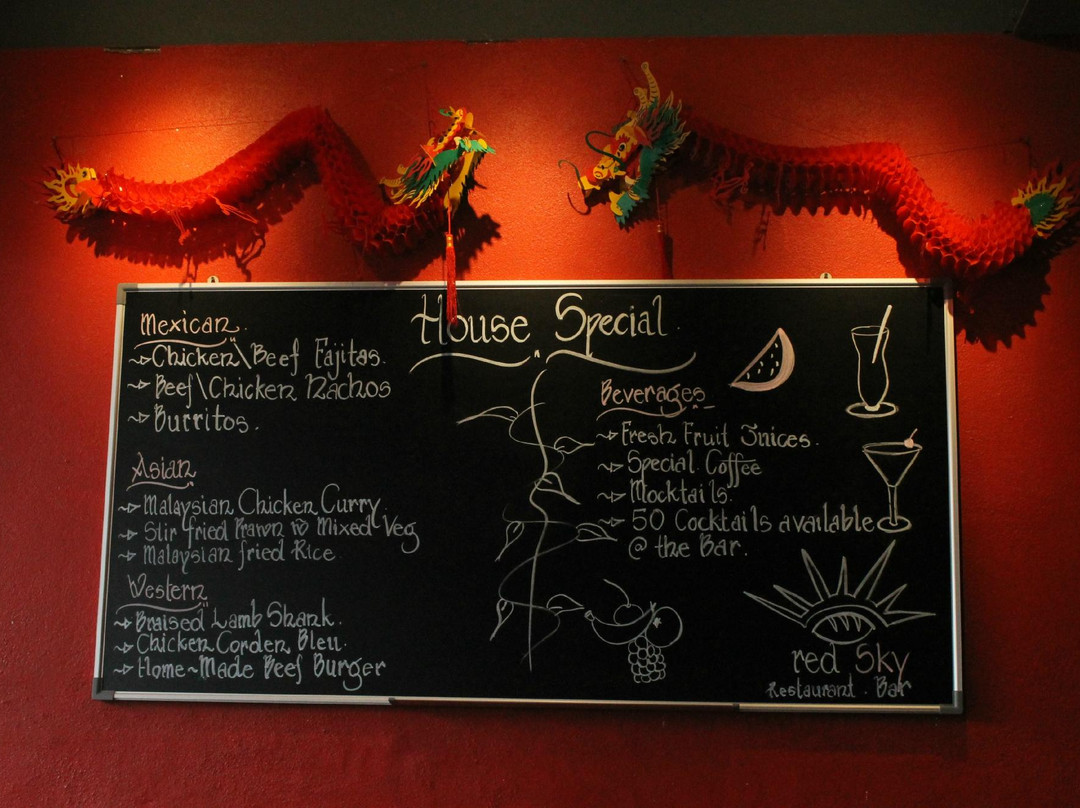 House Special
Mexican
Chicken\Beef Fajitas.
Beef\Chicken Nachos
Burritos.
Asian
Malaysian Chicken Curry.
Stir fried Prawn w Mixed Veg
Malaysian fried Rice
Western
Braised Lamb Shank.
Chicken Corden Bleu.
Home~Made Beef Burger
Beverages
Fresh Fruit Juices.
Special Coffee
Mocktails.
50 Cocktails available
@ the Bar.
red Sky
Restaurant . Bar